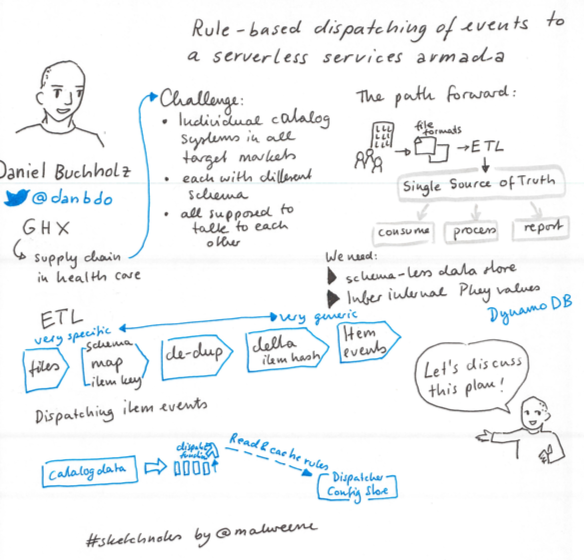 Rule-based dispatching of events to
a serverless services armada
Daniel Buchholz
@danbdo
GHX
supply chain
in health care
Challenge:
• Individual catalog
systems in all
target markets
• each with different
schema
• all supposed to
talk to each
other
The path forward:
file
formats
ETL
Single Source of Truth
consume
process
report
We need:
schema-less data store
Infer internal Pkey values
DynamoDB
ETL
very specific
very generic
files
schema
map
item key
de-dup
delta
item hash
Item
events
Let's discuss
this plan!
Dispatching item events
Catalog data
Read & cache rules
Dispatcher
Config Store
#sketchnotes by @malweene